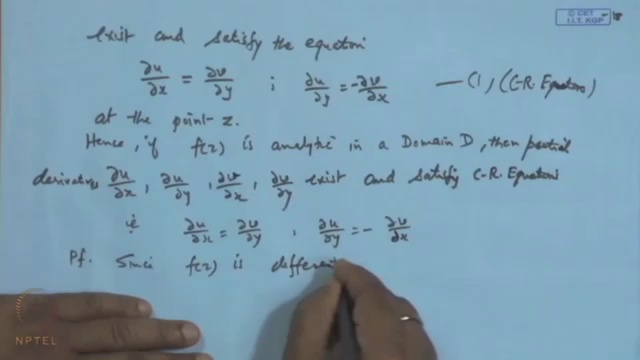 © CET
I.I.T. KGP
exist and satisfy the equation
∂u/∂x = ∂v/∂y ; ∂u/∂y = -∂v/∂x — (1) (C-R. Equations)
at the point z.
Hence, if f(z) is analytic in a Domain D, then partial
derivatives ∂u/∂x, ∂u/∂y, ∂v/∂x, ∂v/∂y exist and satisfy C-R. Equations
ie ∂u/∂x = ∂v/∂y , ∂u/∂y = - ∂v/∂x
Pf. Since f(z) is different
NPTEL